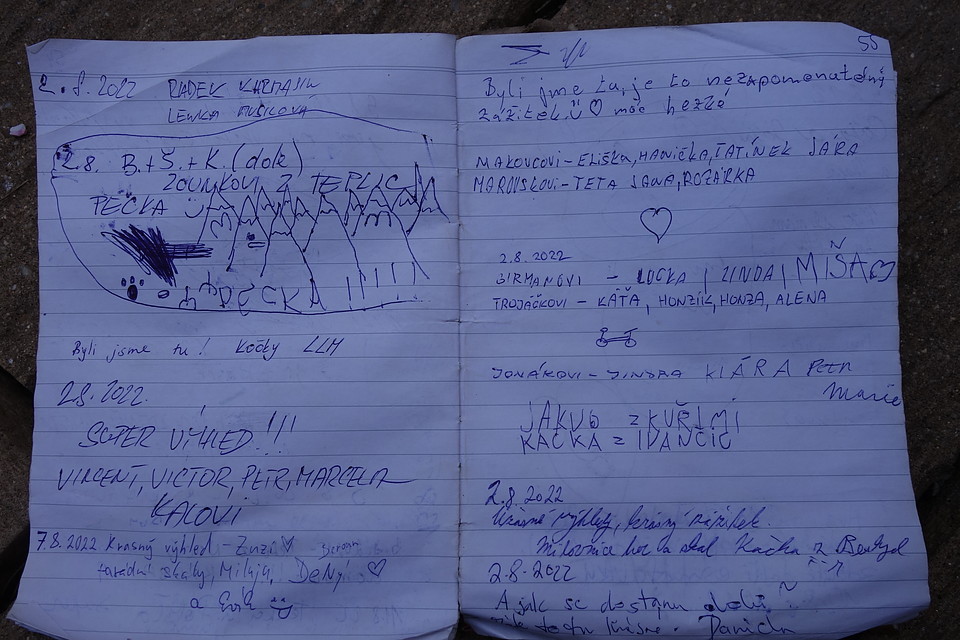 2.8.2022 RADEK
LENKA MUSILOVÁ
2.8. B.+Š.+K. (dole)
ZOUNKOVI Z TEPLIC
PÉČKA
Byli jsme tu! Kočky LLM
2.8.2022.
SUPER VÝHLED!!!
VINCENT, VICTOR, PETR, MARCELA
KALOVI
7.8.2022 Krásný výhled - Zuzi
skály, Miluju, DeNy
a Evik
55
Byli jsme ta, je to nezapomenutelný
zážitek moc hezké
MAKOVCOVI - ELIŠKA, HANIČKA, TATÍNEK JÁRA
MAROUSKOVI - TETA JANA, ROZÁRKA
2.8.2022
SIRMANOVI - LUCKA | LINDA | MIŠA
TROJÁČKOVI - KÁŤA, HONZÍK, HONZA, ALENA
JONÁKOVI - JINDRA KLÁRA PETR
Marie
JAKUB z KUŘIMI
KAČKA z IVANČIC
2.8.2022
Úžasné výhledy, krásný zážitek.
Milovnice hor a skal Kačka z
2.8.2022
A jak se dostanu dolů?
tu krásně. Daniela